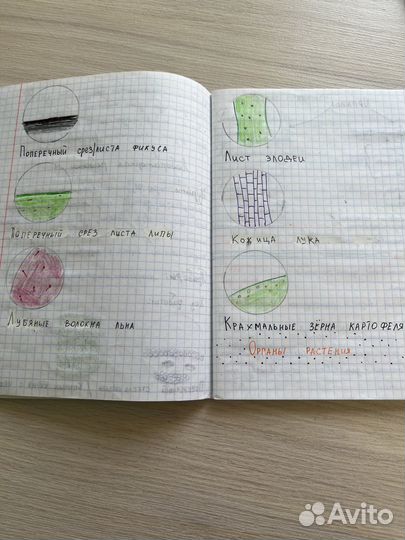 Поперечный срез листа фикуса
Поперечный срез листа липы
Лубяные волокна льна
Лист элодеи
Кожица лука
Крахмальные зёрна картофеля
Органы растения
Avito